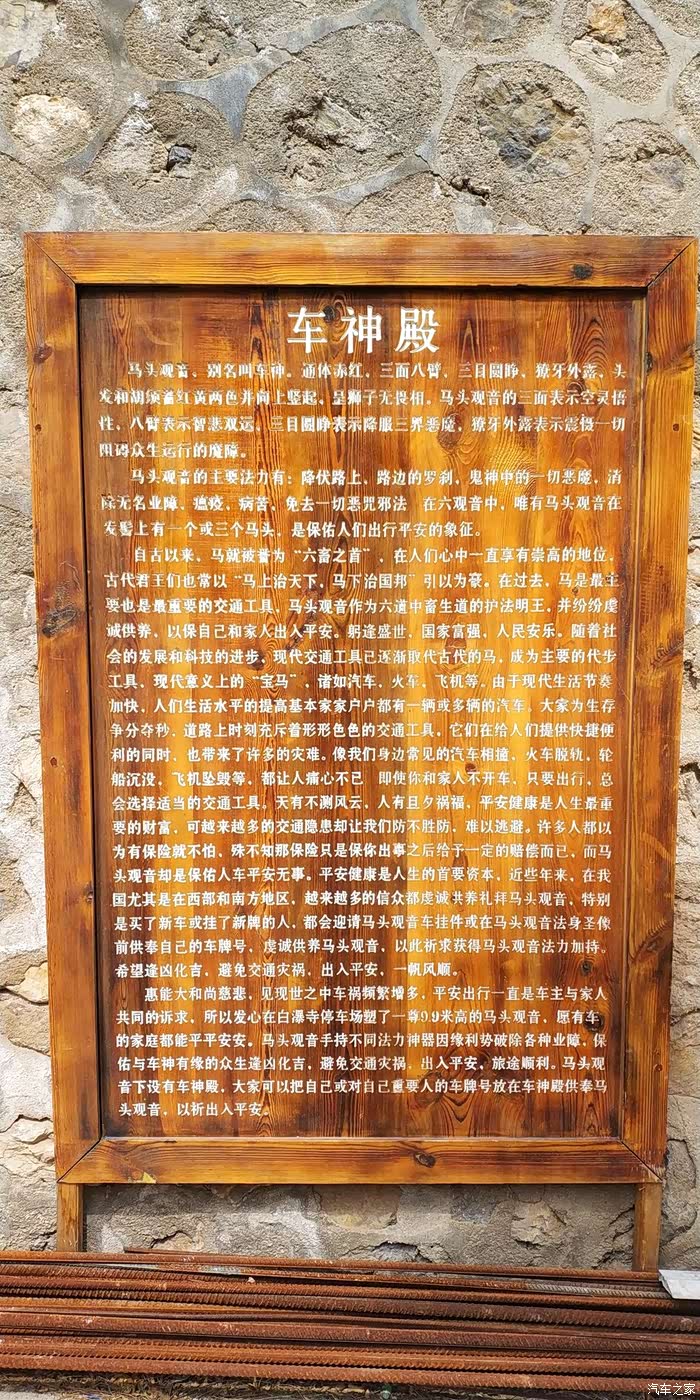 车神殿
马头观音，别名叫车神。通体赤红，三面八臂，三目圆睁，獠牙外露，头
发和胡须着红黄两色并向上竖起，呈狮子无畏相。马头观音的三面表示空灵悟
性，八臂表示智悲双运，三目圆睁表示降服三界恶魔，獠牙外露表示震慑一切
阻碍众生运行的魔障。
马头观音的主要法力有：降伏路上、路边的罗刹，鬼神中的一切恶魔，消
除无名业障、瘟疫、病苦，免去一切恶咒邪法 在六观音中，唯有马头观音在
发髻上有一个或三个马头，是保佑人们出行平安的象征。
自古以来，马就被誉为“六畜之首”，在人们心中一直享有崇高的地位，
古代君王们也常以“马上治天下，马下治国邦”引以为豪。在过去，马是最主
要也是最重要的交通工具，马头观音作为六道中畜生道的护法明王，并纷纷虔
诚供养，以保自己和家人出入平安。躬逢盛世，国家富强，人民安乐。随着社
会的发展和科技的进步，现代交通工具已逐渐取代古代的马，成为主要的代步
工具，现代意义上的“宝马”，诸如汽车，火车，飞机等，由于现代生活节奏
加快，人们生活水平的提高基本家家户户都有一辆或多辆的汽车，大家为生存
争分夺秒，道路上时刻充斥着形形色色的交通工具，它们在给人们提供快捷便
利的同时，也带来了许多的灾难。像我们身边常见的汽车相撞，火车脱轨，轮
船沉没，飞机坠毁等，都让人痛心不已 即使你和家人不开车，只要出行，总
会选择适当的交通工具。天有不测风云，人有旦夕祸福，平安健康是人生最重
要的财富，可越来越多的交通隐患却让我们防不胜防，难以逃避。许多人都以
为有保险就不怕，殊不知那保险只是保你出事之后给予一定的赔偿而已，而马
头观音却是保佑人车平安无事。平安健康是人生的首要资本，近些年来，在我
国尤其是在西部和南方地区，越来越多的信众都虔诚供养礼拜马头观音，特别
是买了新车或挂了新牌的人，都会迎请马头观音车挂件或在马头观音法身圣像
前供奉自己的车牌号，虔诚供养马头观音，以此祈求获得马头观音法力加持。
希望逢凶化吉，避免交通灾祸，出入平安，一帆风顺。
惠能大和尚慈悲，见现世之中车祸频繁增多，平安出行一直是车主与家人
共同的诉求，所以发心在白瀑寺停车场塑了一尊9.9米高的马头观音，愿有车
的家庭都能平平安安。马头观音手持不同法力神器因缘利势破除各种业障，保
佑与车神有缘的众生逢凶化吉，避免交通灾祸，出入平安，旅途顺利。马头观
音下设有车神殿，大家可以把自己或对自己重要人的车牌号放在车神殿供奉马
头观音，以祈出入平安。
汽车之家